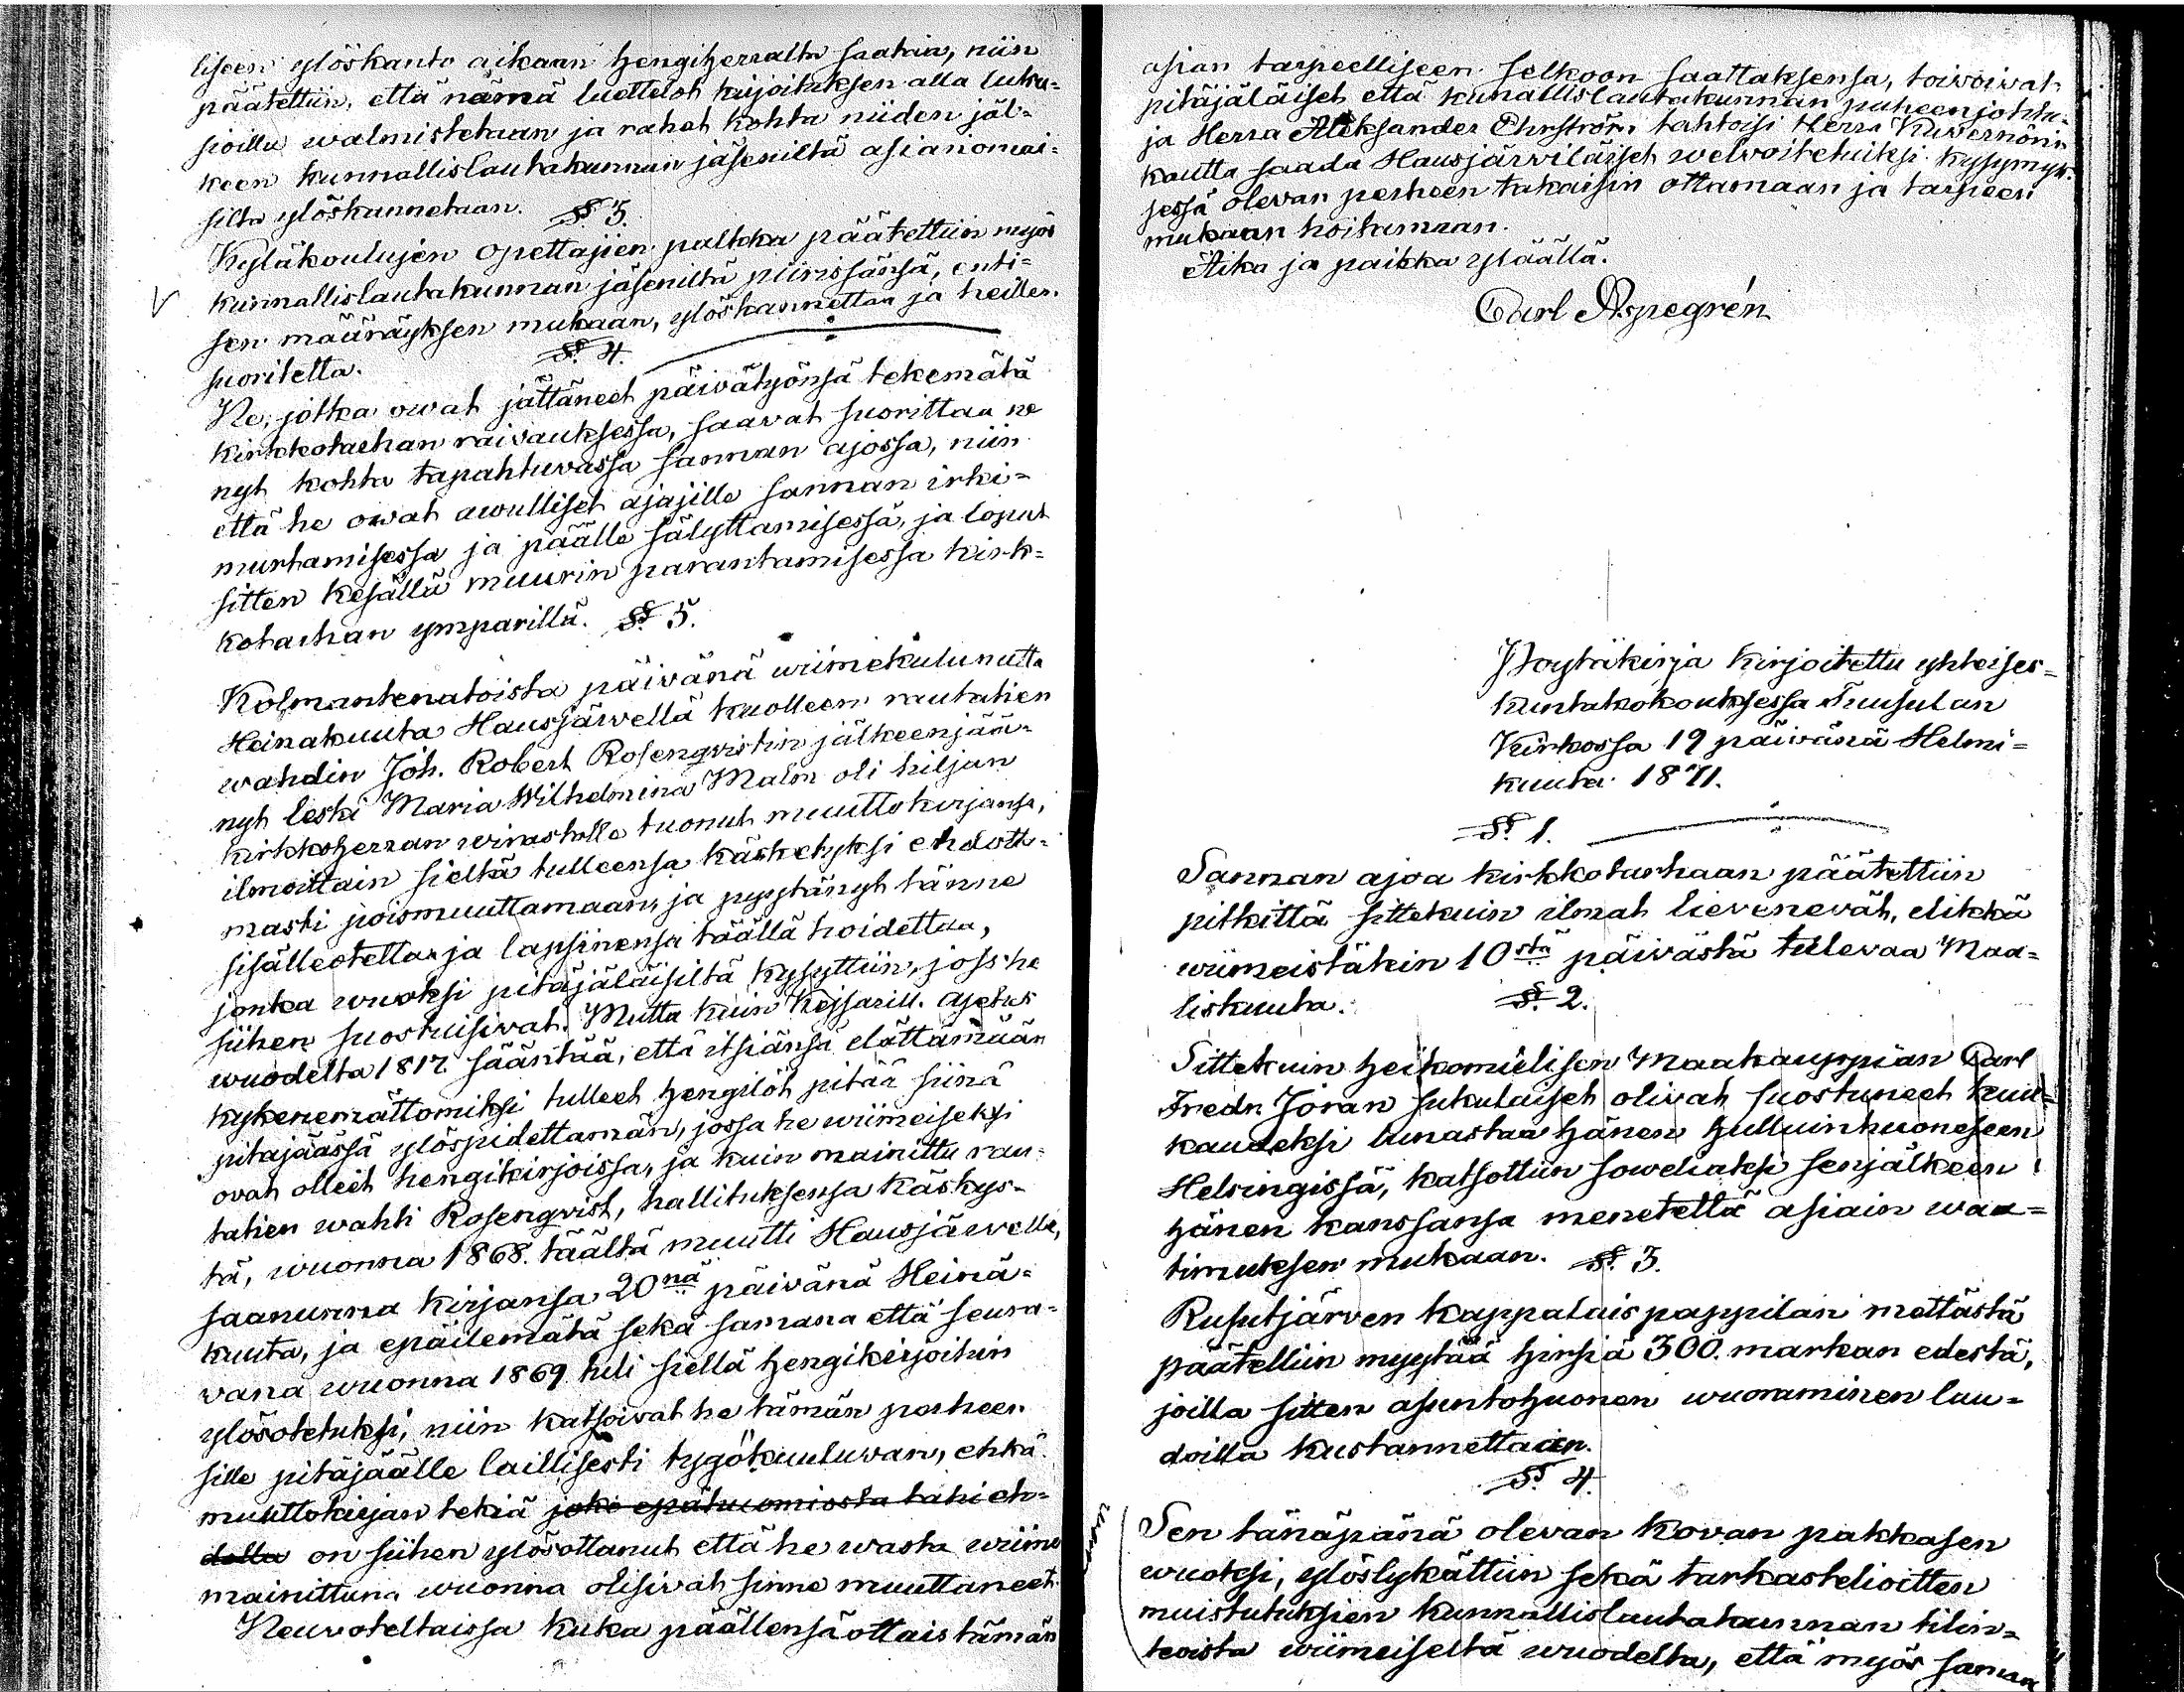 liseen ylöskanto aikaan hengiherralta saatein, niin
päätettiin, että nämä luettelot kirjoituksen alla luku-
sioilla walmistetaan ja rahat kohta niiden jäl-
keen kunnallislautakunnan jäseniltä asianomai-
silta ylöskannetaan.
§ 3.
Kyläkoulujen opettajien palkka päätettiin myös
kunnallislautakunnan jäseniltä piirissänsä, enti-
sen määräyksen mukaan, ylöskannettaa ja heille
suoritetta.
§ 4.
Ne, jotka owat jättäneet päivätyönsä tekemätä
kirkkotarhan raivauksessa, saavat suorittaa ne
nyt kohta tapahtuvassa sannan ajossa, niin
että he owat awulliset ajajille sannan irki-
murtamisessa ja päälle sälyttamisessä, ja loput
sitten kesällä muurin parantamisessa kirk-
kotarhan ymparillä. § 5.
Kolmantenatoista päivänä wiimekulunutta
Heinakuuta Hausjärwellä kuolleen rautatien
wahdin Joh. Robert Rosenqvistin jälkeenjää-
nyt leski Maria Wilhelmina Malm oli hiljan
kirkkoherran wirastolle tuonut muuttokirjansa,
ilmoittain sieltä tulleensa käsketyksi ehdotto-
masti poismuuttamaan, ja pyytänyt tänne
sisälleotettaa ja lapsinensa täällä hoidettaa,
jonka wuoksi pitäjäläisiltä kysyttiin, joss he
siihen suostuisivat. Mutta kuin Keisarill. asetus
wuodelta 1817 sääntää, että itsiänsä elättämään
kykenemättomiksi tulleet hengilöt pitää siinä
pitajäässä ylöspidettamän, jossa he wiimeiseksi
ovat olleet hengikirjoissa, ja kuin mainittu rau-
tatien wahti Rosenqvist, hallituksensa käskys-
tä, wuonna 1868. täältä muutti Hausjärwelle,
saanunna kirjansa 20nä päivänä Heinä-
kuuta, ja epäilemätä sekä samana että seura-
vana wuonna 1869 tuli siellä hengikirjoihin
ylösotetuksi, niin katsoivat he tämän perheen
sille pitäjäälle laillisesti tygökuuluwan, ehkä
muuttokirjan tekiä joko epähuomiosta tahi eh-
dolla on siihen ylösottanut että he wasta wiime
mainittuna wuonna olisivat sinne muuttaneet.
Neuvoteltaissa kuka päällensä ottais tämän
asian tarpeelliseen selkoon saattaksensa, toivoivat
pitäjäläiset että kunallislautakunnan puheenjohta-
ja Herra Aleksander Ehrström tahtoisi Herra Kuvernörin
kautta saada Hausjärviläiset welvoitetuiksi kysymyk-
sessä olevan perheen takaisin ottamaan ja tarpeen
mukaan hoitamaan.
Aika ja paikka ylläällä.
Carl Aspegrén
Pöytäkirja kirjoitettu yhteises-
kuntakokouksessa Tuusulan
Kirkossa 19 päivänä Helmi-
kuuta 1871.
§ 1.
Sannan ajoa kirkkotarhaan päätettiin
pitkittä sittekuin ilmat lievenevät, elikkä
wiimeistäkin 10stä päivästä tulevaa Maa-
liskuuta. § 2.
Sittekuin heikomielisen Maakauppian Carl
Fredr. Joran sukulaiset olivat suostuneet kuu-
kaudeksi lunastaa hänen hulluinhuoneseen
Helsingissä, katsottiin soweliaksi senjälkeen
hänen kanssansa menetettä asiain waa-
timuksen mukaan. § 3.
Rusutjärven kappalais pappilan mettästä
päätettiin myytää hirsiä 300. markan edestä,
joilla sitten asuntohuonen wuoraminen lau-
doilla kustannettaan.
§ 4.
Sen tänäpänä olevan kovan pakkasen
wuoksi, ylöslykättiin sekä tarkastelioitten
muistutuksien kunnallislautakunnan tilin-
teoista wiimeiseltä wuodelta, että myös saman